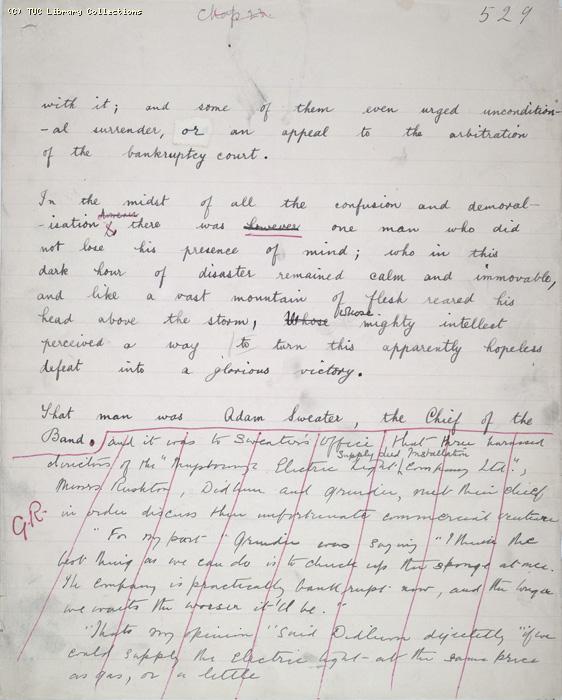 (C) TUC Library Collections
Chap 22
529
with it; and some of them even urged uncondition-
-al surrender, or an appeal to the arbitration
of the bankruptcy court.
In the midst of all the confusion and demoral-
-isation however there was however one man who did
not lose his presence of mind; who in this
dark hour of disaster remained calm and immovable,
and like a vast mountain of flesh reared his
head above the storm, Whose whose mighty intellect
perceived a way to turn this apparently hopeless
defeat into a glorious victory.
That man was Adam Sweater, the Chief of the
Band. and it was to Sweater's Office that three harassed
directors of the "Mugsborough Electric Light Supply and Installation Company Ltd.",
Messrs Rushton, Didlum and Grinder, met their chief
in order discuss their unfortunate commercial venture
G.R.
"For my part" Grinder was saying "I think the
best thing as we can do is to chuck up the sponge at once.
The company is practically bankrupt now, and the longer
we waits the worser it'll be."
"That's my opinion" said Didlum dejectedly "if we
could supply the Electric light at the same price
as gas, or a little